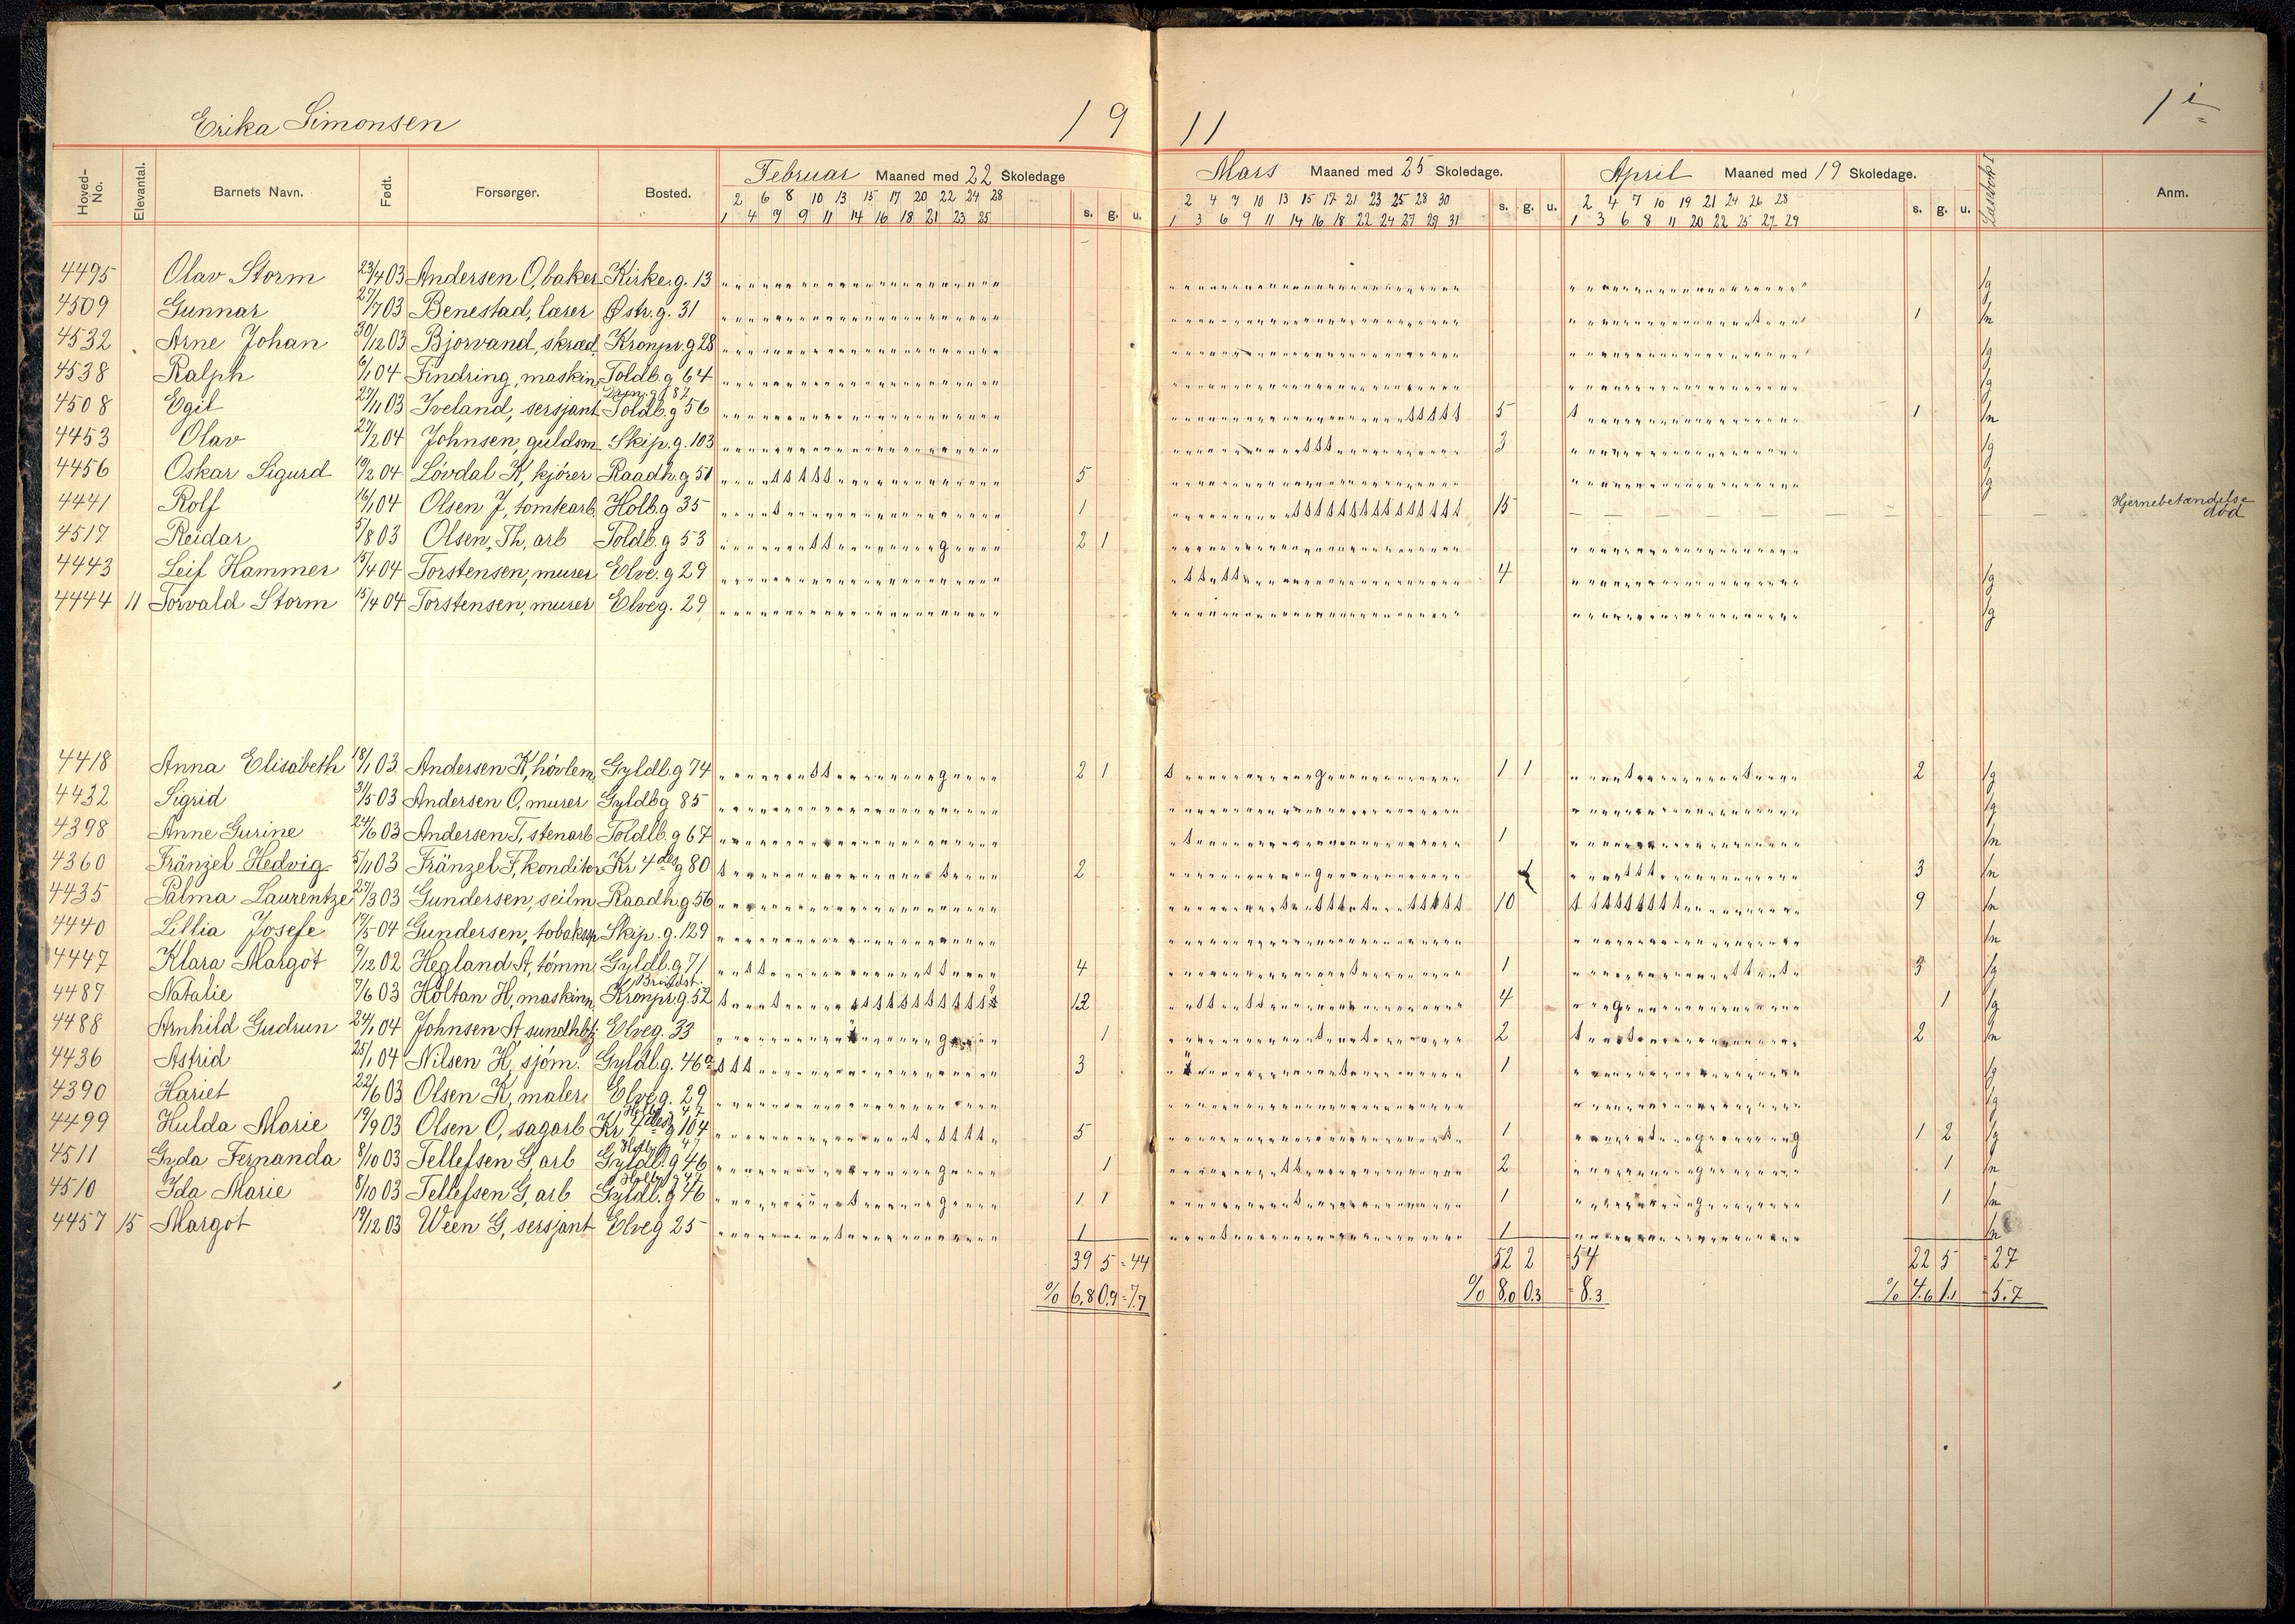 Erika Simonsen 19 11 1 i
Hoved-No. Elevantal. Barnets Navn. Født. Forsørger. Bosted. Februar Maaned med 22 Skoledage s. g. u. Mars Maaned med 25 Skoledage. s. g. u. April Maaned med 19 Skoledage. s. g. u. Læsebok I Anm.
2 6 8 10 13 15 17 20 22 24 28 2 4 7 10 13 15 17 21 23 25 28 30 2 4 7 10 19 21 24 26 28
1 4 7 9 11 14 16 18 21 23 25 1 3 6 9 11 14 16 18 22 24 27 29 31 1 3 6 8 11 20 22 25 27 29
4495 Olav Storm 23/4 03 Andersen O, baker Kirke.g. 13 1g
4509 Gunnar 27/7 03 Benestad, lærer Østr.g. 31 s 1 1n
4532 Arne Johan 30/12 03 Bjorvand, skræd. Kronpr.g 28 1g
4538 Ralph 6/1 04 Findring, maskin. Toldb.g 64 1g
4508 Egil 27/11 03 Iveland, sersjant Toldb.g 56 s s s s s 5 s 1 1n
4453 Olav 27/2 04 Johnsen, guldsm Skip.g. 103 s s s 3 1g
4456 Oskar Sigurd 19/2 04 Lövdal K, kjörer Raadh.g 51 s s s s s 5 1g
4441 Rolf 16/1 04 Olsen J, tomtearb. Holb.g 35 s 1 s s s s s s s s s s s s s s s 15 — — — — — — — — — — Hjernebetændelse
død
4517 Reidar 5/8 03 Olsen, Th, arb Toldb.g 53 s s g 2 1
4443 Leif Hammer 15/4 04 Torstensen, murer Elve.g 29 s s s s 4 1g
4444 11 Torvald Storm 15/4 04 Torstensen, murer Elveg. 29 1g
4418 Anna Elisabeth 18/1 03 Andersen K, hövlem. Gyldb.g 74 s s g 2 1 s g 1 1 s s 2 1g
4432 Sigrid 31/5 03 Andersen O, murer Gyldbg 85 1g
4398 Anne Gurine 24/6 03 Andersen T, stenarb Toldb.g 67 s 1 1n
4360 Fränzel Hedvig 5/11 03 Fränzel F, konditor Kr 4des g 80 s s 2 g 1 s s s 3 1n
4435 Palma Laurentze 27/3 03 Gundersen, seilm Raadh.g 56 10 9 1n
4440 Lillia Josefe 19/5 04 Gundersen, tobaksp Skip.g. 129 1n
4447 Klara Margot 9/12 02 Hegland A, tömm. Gyldb.g 71 s s s s 4 s 1 s s s 3 1g
Brændst.
4487 Natalie 7/6 03 Holtan H, maskinn Kronpr.g. 52 12 s s s s 4 g 1 1g
4488 Arnhild Gudrun 24/1 04 Johnsen A, sundhbtj Elveg. 33 g 1 s s 2 s s 2 1n
4436 Astrid 25/1 04 Nilsen H, sjöm. Gyldb.g. 46a s s s 3 s 1 1g
4390 Hariet 22/6 03 Olsen K, maler Elveg. 29 1g
Holbg 47
4499 Hulda Marie 19/9 03 Olsen O, sagarb Kr 4des g 104 s s s s s 5 s 1 s g g 1 2 1g
Holbg 47
4511 Gyda Fernanda 8/10 03 Tellefsen G, arb Gyldb.g 46 g 1 s s 2 g 1 1n
Holbg 47
4510 Ida Marie 8/10 03 Tellefsen G, arb Gyldb.g 46 s g 1 1 s 1 g 1 1n
4457 15 Margot 19/12 03 Ween G, sersjant Elveg 25 s 1 s 1 1n
39 5 = 44 52 2 = 54 22 5 = 27
% 6,8 0.9 = 7.7 % 8.0 0.3 = 8.3 % 4.6 1.1 = 5.7